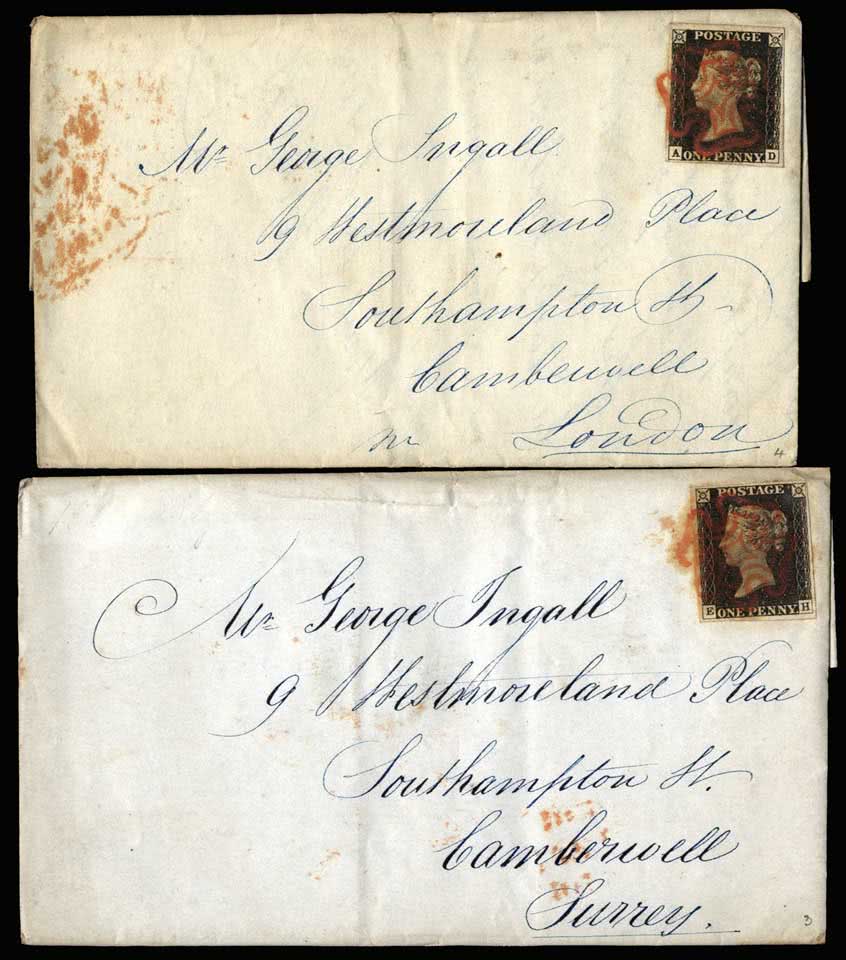 POSTAGE
A ONE PENNY D
Mr George Ingall
9 Westmoreland Place
Southampton St
Camberwell
nr London
4
POSTAGE
E ONE PENNY H
Mr George Ingall
9 Westmoreland Place
Southampton St.
Camberwell
Surrey.
3